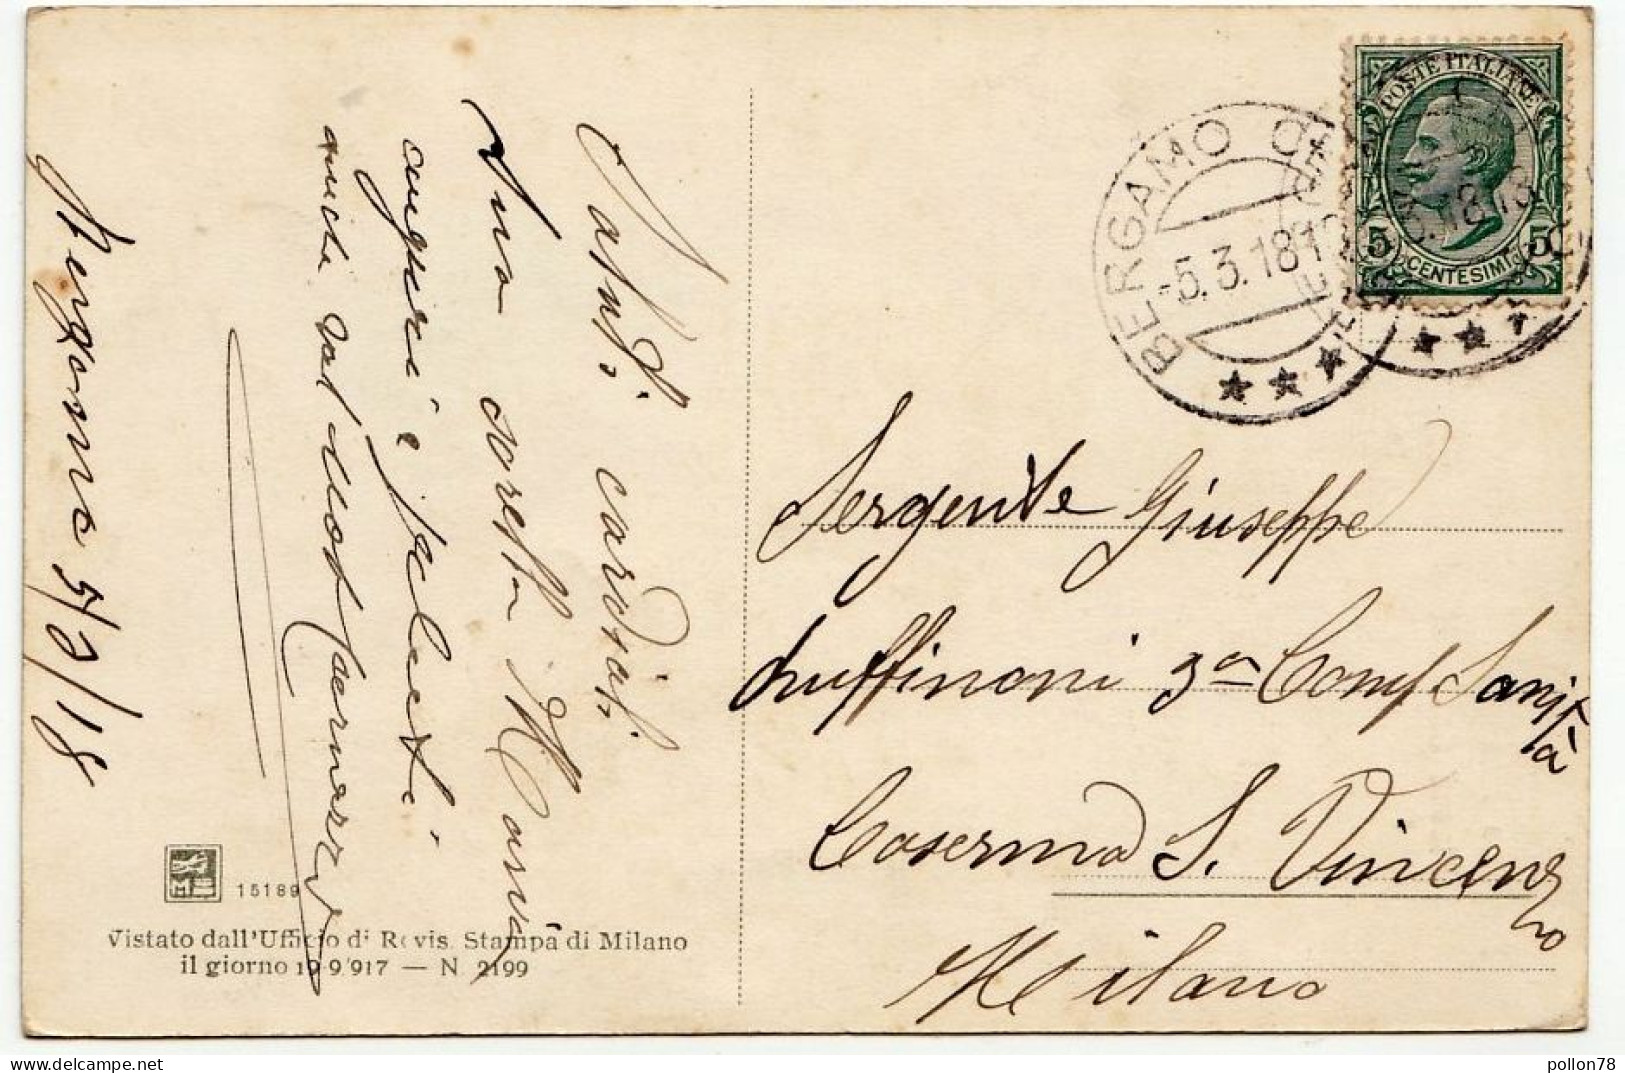 Bergamo 5/3/18
Saluti cordiali
tua sorella Maria
auguri e
anche dal
15189
Vistato dall'Ufficio di Revis. Stampa di Milano
il giorno 19-9-917 — N. 2199
POSTE ITALIANE
5 CENTESIMI 5
BERGAMO
-5.3.18
Sergente Giuseppe
Ruffinoni 3a Comp Sanità
Caserma S. Vincenzo
Milano
delcampe.net
pollon78